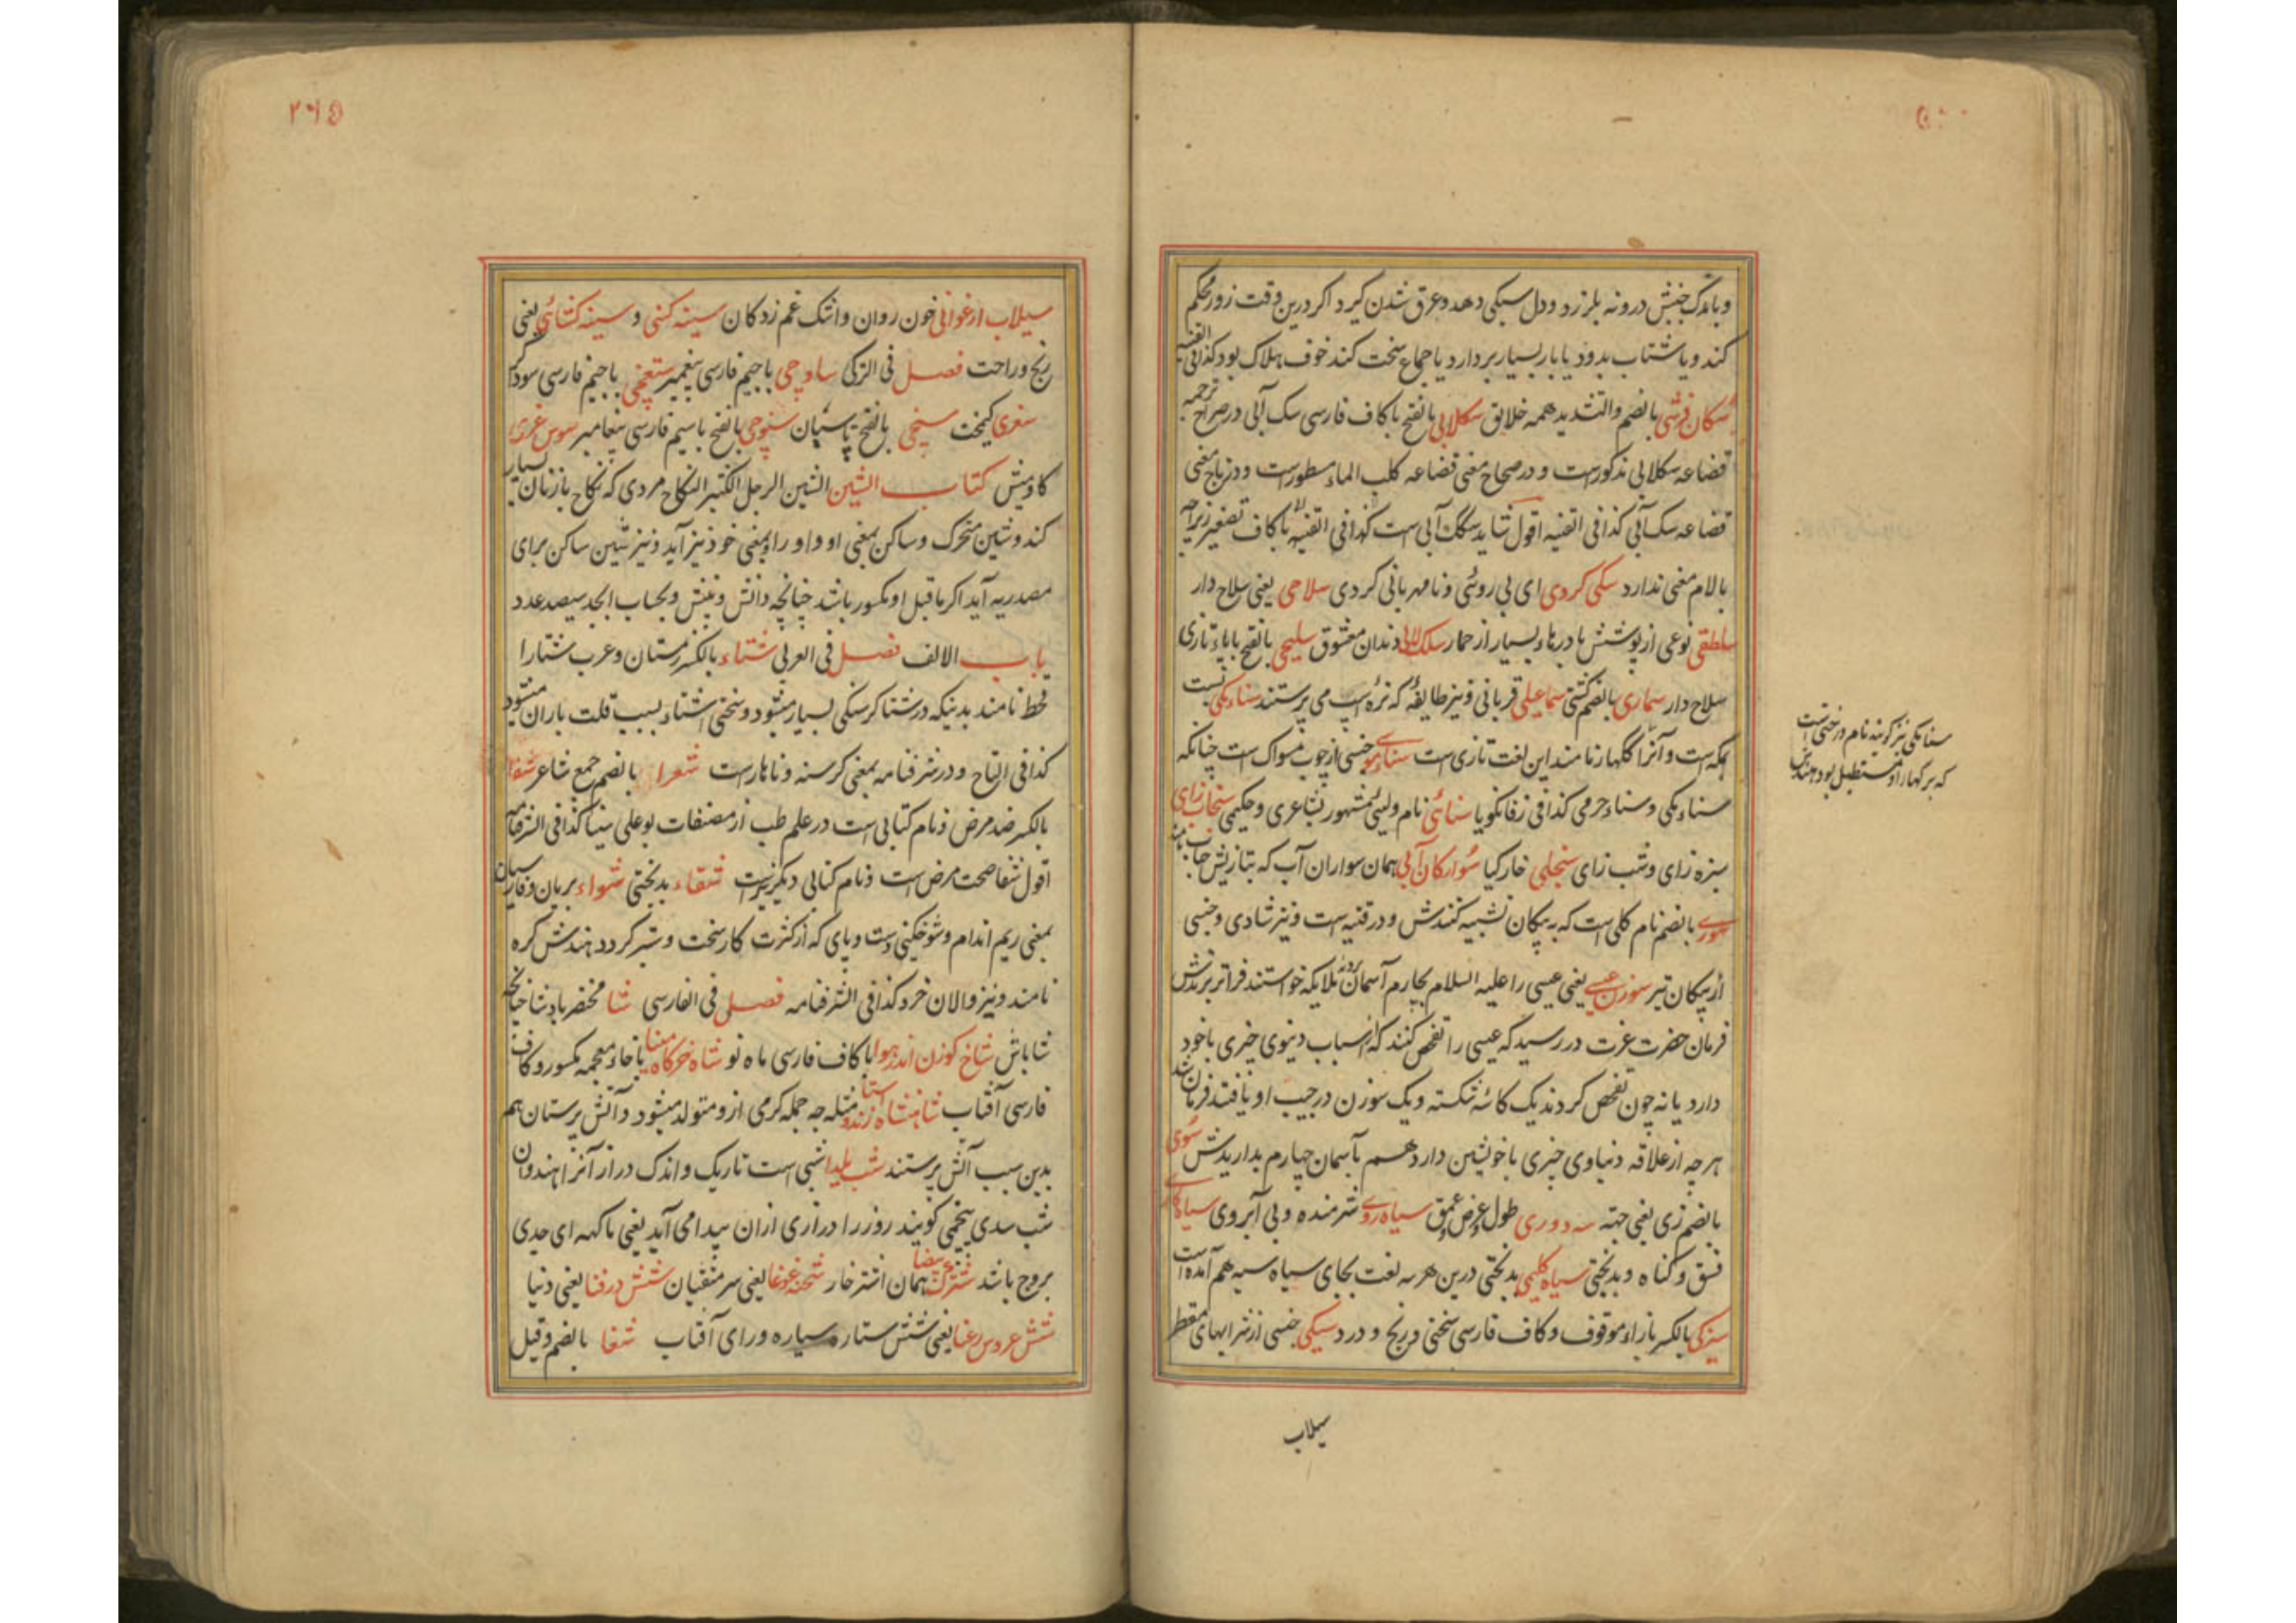 وباندک جنبش درونه بلرزد و دل سبکی دهد و عرق شدن کیرد اکر درین وقت زور محکم
کند و یا شتاب بدود یا بار بسیار بردارد یا جماع سخت کند خوف هلاک بود کذا فی القنیه
سکان قرشی بالضم والتشدید همه خلایق سکلابی بالفتح با کاف فارسی سک آبی در صراح ترجمه
قضاعه سکلابی مذکورست و در صحاح معنی قضاعه کلب الماء مسطورست و در تاج معنی
قضاعه سک آبی کذا فی القنیه اقول شاید سکک آبی ست کذا فی القنیه با کاف تصغیر زیراچه
بالام معنی ندارد سکی کردی ای بی روئی و نامهربانی کردی سلاحی یعنی سلاح دار
سلطقی نوعی از پوشش با درهاء بسیار از حمار سلک لالی دندان معشوق سلیحی بالفتح با یاء تازی
سلاح دار سماری بالضم کشتی سماعیلی قربانی و نیز طایفهٔ که نرهٔ اسپ می پرستند سناء مکی نسبت
بمکه است و آنرا کلهار نامند این لغت تازی ست سناء موی جنسی از چوب مسواک است چنانکه
سناء مکی و سناء حرمی کذا فی زفانکویا سنائی نام ولیئ مشهور بشاعری و حکیمی سنجاب زای
سبزه زای و شب زای سنجلی خار کیا سوارکان آبی همان سواران آب که بتازیش حباب نامند
سوری بالضم نام کلی است که به پیکان تشبیه کنندش و در قنیه ست و نیز شادی و جنسی
از پیکان تیر سوزن عیسی یعنی عیسی را علیه السلام بچارم آسمان بردند ملایکه خواستند فراتر برندش
فرمان حضرت عزت در رسید که عیسی را تفحص کنند که از اسباب دنیوی چیزی با خود
دارد یا نه چون تفحص کردند یک کاسهٔ شکسته و یک سوزن در جیب او یافتند فرمان شد
هرچه از علاقه دنیاوی چیزی با خویشتن دارد هم بآسمان چهارم بداریدش سوی
بالضم زی یعنی جهته سه دوری طول و عرض و عمق سیاه روی شرمنده و بی آبروی سیاه کاری
فسق و کناه و بدبختی سیاه کلیمی بدبختی درین هر سه لغت بجای سیاه سیه هم آمده است
سیزکی بالکسر با زاء موقوف و کاف فارسی سختی و رنج و درد سیکی جنسی از شرابهای مقطر
سیلاب
سنا مکی نیز کویند نام درختی است
که برکهاء او مستطیل بود هندش
۲۶۵
سیلاب ارغوانی خون روان و اشک غم زدکان سینه کنی و سینه کشائی یعنی
رنج و راحت فصل فی الترکی ساوجی باجیم فارسی پیغمبر ستغجی باجیم فارسی سوداکر
سغری کیمخت سنجی بالفتح پاسبان سنوجی بالفتح باسیم فارسی پیغامبر سوس غری
کاومیش کتاب الشین الشین الرجل الکثیر النکاح مردی که نکاح با زنان بسیار
کند و شین متحرک و ساکن بمعنی او و او را و بمعنی خود نیز آید و نیز شین ساکن برای
مصدریه آید اکر ما قبل او مکسور باشد چنانچه دانش و بینش و بحساب ابجد سیصد عدد
باب الالف فصل فی العربی شتاء بالکسر زمستان و عرب شتا را
قحط نامند بدینکه در شتا کرسنکی بسیار میشود و سختی شتاء بسبب قلت باران میشود
کذا فی التاج و در شرفنامه بمعنی کرسنه و ناهارست شعرا بالضم جمع شاعر شفا
بالکسر ضد مرض و نام کتابی است در علم طب از مصنفات بوعلی سینا کذا فی الشرفنامه
اقول شفا صحت مرض است و نام کتابی دیکر نیزست شقاء بدبختی شواء بریان و فارسیان
بمعنی ریم اندام و شوخکینی دست و پای که از کثرت کار سخت و ستبر کردد هندش کره
نامند و نیز والان خرد کذا فی الشرفنامه فصل فی الفارسی شا مختصر باد شا چنانچه
شاباش شاخ کوزن اندر هوا با کاف فارسی ماه نو شاه خرکاه مینا با خاء معجمه مکسور و کاف
فارسی آفتاب شاهنشاه زند و استا مثله جه جمله کرمی ازو متولد میشود و آتش پرستان هم
بدین سبب آتش پرستند شب یلدا شبی است تاریک و اندک دراز آنرا هندوان
شب سدی پنجمی کویند روز را درازی ازان پیدا می آید یعنی ماکهه ای جدی
بروج باشد شترک بیضا همان اشترخار شحنه غوغا یعنی سرمنقیان شش در فنا یعنی دنیا
شش عروس رعنا یعنی شش ستاره سیاره ورای آفتاب شغا بالضم و قیل